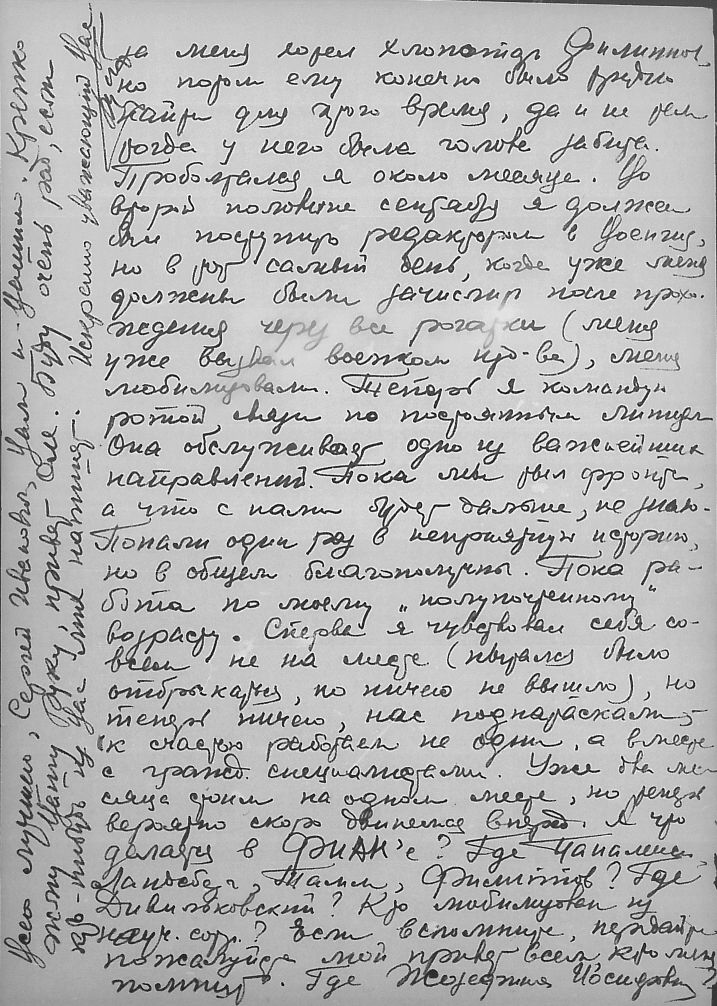 за меня хотел хлопотать Филиппов,
но потом ему конечно было трудно
найти для этого время, да и не тем
тогда у него была голова забита.
Проболтался я около месяца. Во
второй половине сентября я должен
был поступить редактором в Воениз,
но в тот самый день, когда уже меня
должны были зачислить после прохо-
ждения через все рогатки (меня
уже вызвал военком изд-ва), меня
мобилизовали. Теперь я командую
ротой связи по постоянным линиям
Она обслуживает одно из важнейших
направлений. Пока мы тыл фронта,
а что с нами будет дальше, не знаю.
Попали один раз в неприятную историю,
но в общем благополучны. Пока ра-
бота по моему „полупочтенному"
возрасту. Сперва я чувствовал себя со-
всем не на месте (пытался было
отбрыкаться, но ничего не вышло), но
теперь ничего, нас поднатаскали,
к счастью работаем не одни, а вместе
с гражд. специалистами. Уже два ме-
сяца стоим на одном месте, но теперь
вероятно скоро двинемся вперед. А что
делается в ФИАН'е? Где Папалекси,
Ландсберг, Тамм, Филиппов? Где
Дивильковский? Кто мобилизован из
науч. сотр.? Если вспомните, передайте
пожалуйста мой привет всем кто меня
помнит. Где Иосифовна?
Всего лучшего, Сергей Иванович, Вам и Вашим. Крепко
жму Вашу руку, привет Оле. Буду очень рад, если
кто-нибудь из Вас мне напишет. Искренно уважающий Вас